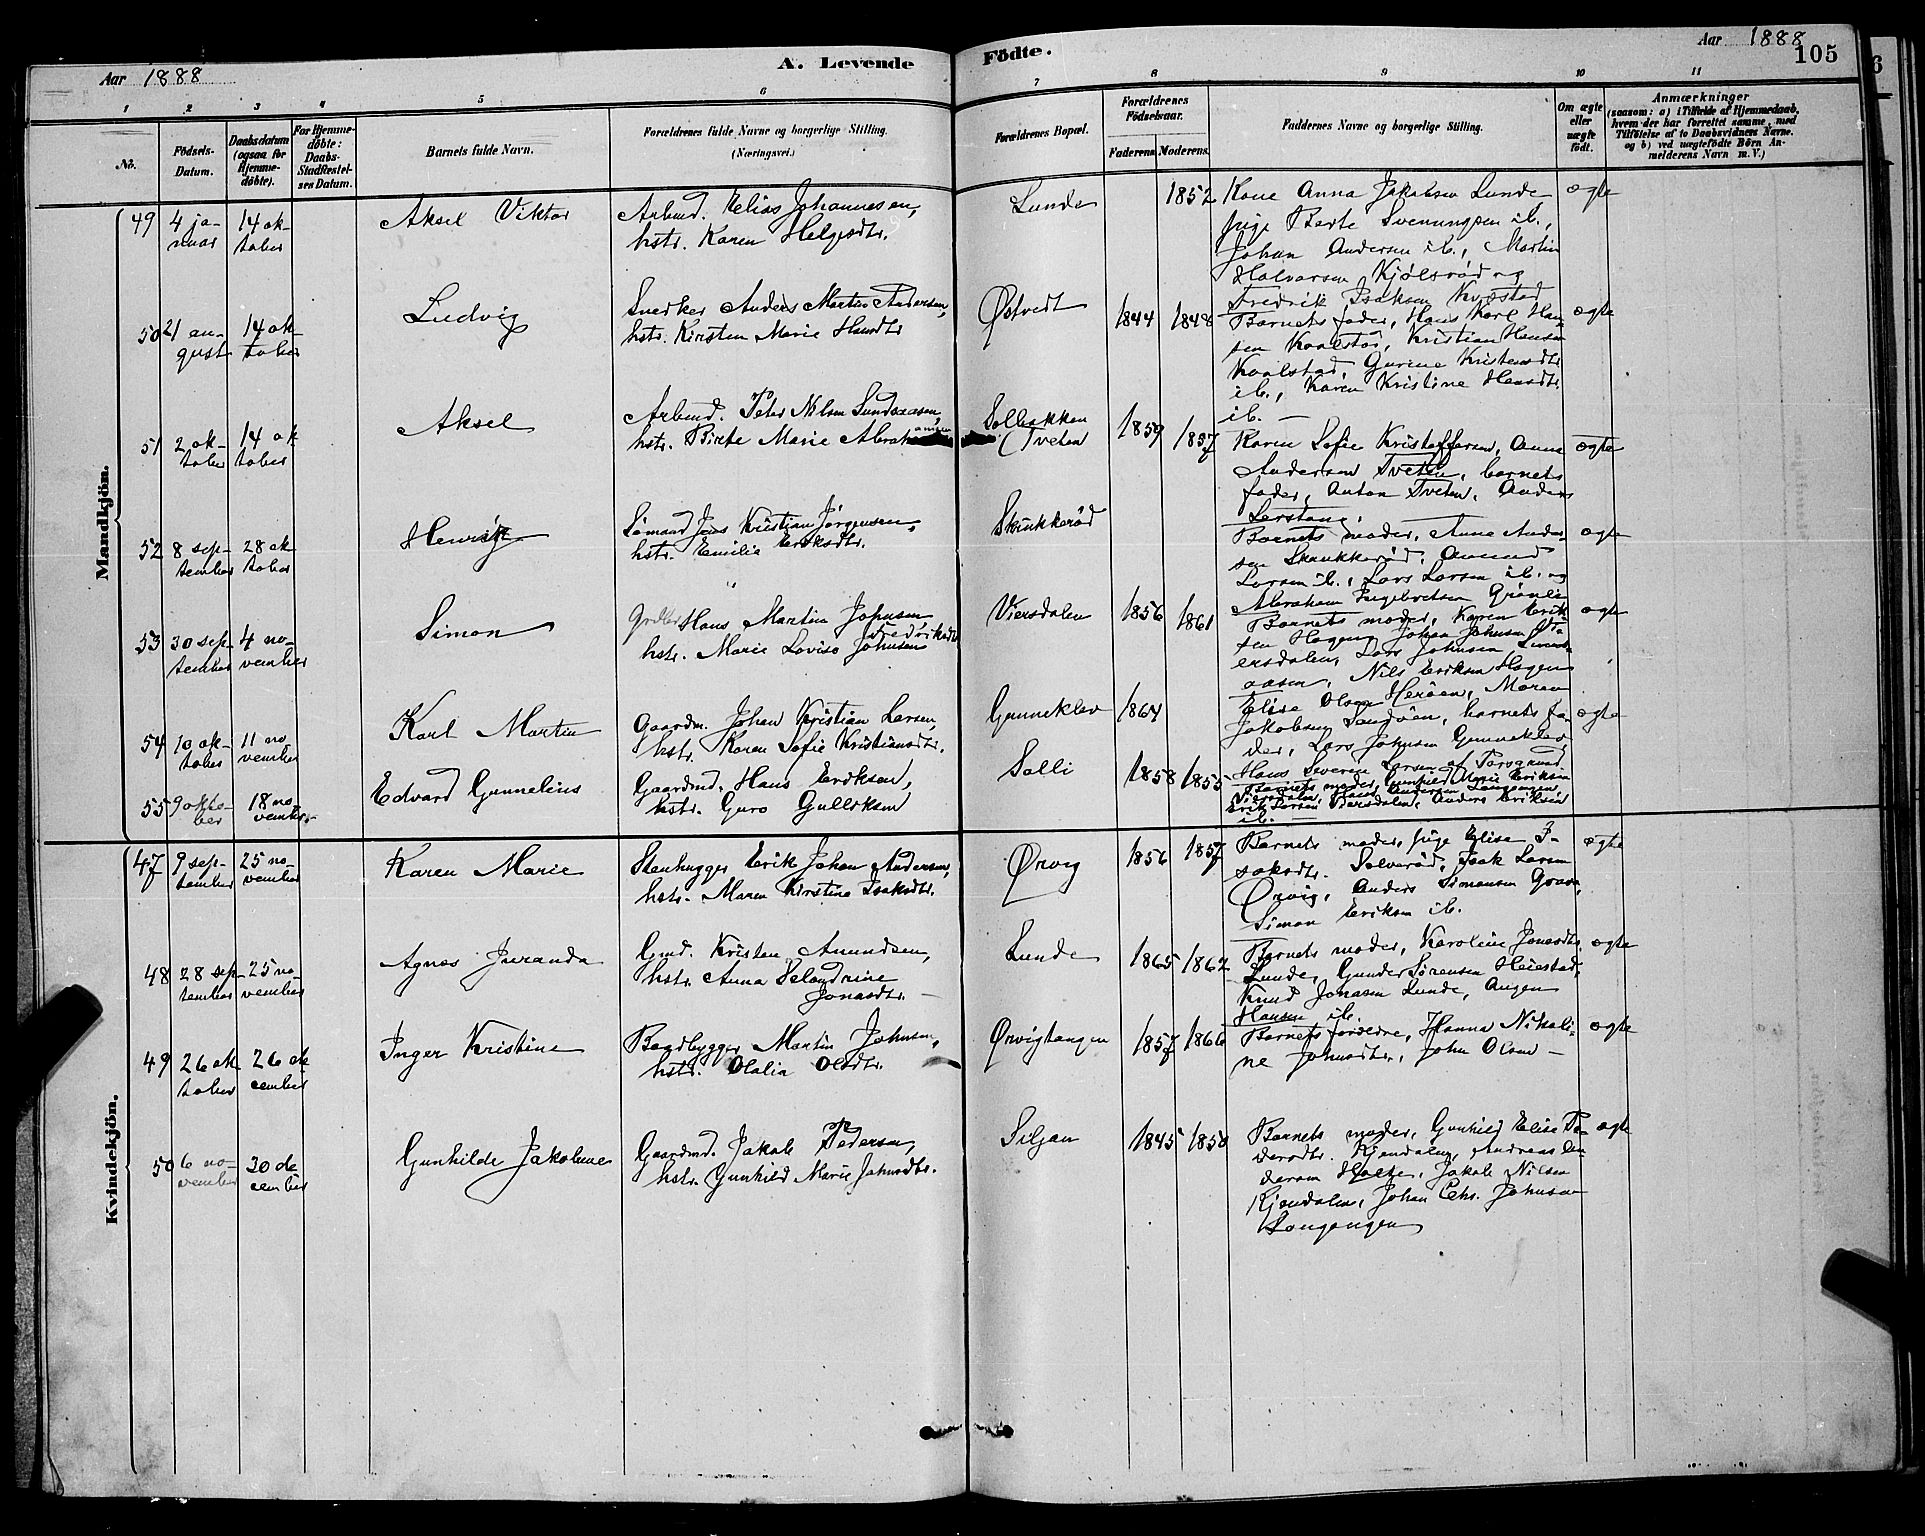 Aar 1888
A. Levende
Födte.
Aar 1888
105
1 2 3 4 5 6 7 8 9 10 11
No.
Födsels-Datum.
Daabsdatum (ogsaa for Hjemmedöbte).
For Hjemmedöbte: Daabs-Stadfæstelses Datum.
Barnets fulde Navn.
Forældrenes fulde Navne og borgerlige Stilling. (Næringsvei.)
Forældrenes Bopæl.
Forældrenes Födselsaar.
Faderens. Moderens.
Faddernes Navne og borgerlige Stilling.
Om ægte eller uægte födt.
Anmærkninger
(saasom: a) i Tilfælde af Hjemmedaab, hvem der har forrettet samme, med Tilföielse af to Daabsvidners Navne. og b) ved uægtefödte Börn Anmelderens Navn m. V.)
Mandkjön.
49 4 januar 14 oktober
Aksel Viktor
Arbmd. Kelias Johannesen,
hstr. Karen Helgesdtr.
Lunde
1852
Kone Anna Jakobsen Lunde
Pige Berte Svenungsen ib.,
Johan Andersen ib., Martin
Halvorsen Kjölsröd og
Fredrik Isaksen
ægte
50 21 august 14 oktober
Ludvig
Snedker Anders Martin Andersen,
hstr. Kirsten Marie Hansdtr
Østvedt
1844 1848
Barnets fader, Hans Karl Hansen
Kristian Hansen
Gurine Kristensdtr
ib., Karen Kristine Hansdtr.
ib.
ægte
51 2 oktober 14 oktober
Aksel
Arbmd. Peter Nilsen Sundsaasen,
hstr. Birte Marie Abrahamsen
Solbakken
(Tveten
1859 1857
Karen Sofie Kristoffersen, Anne
Andersen Tveten, barnets
fader, Anton Tveten, Anders
Lerstang.
ægte
52 8 september 28 oktober
Henrik
Sömand Jens Kristian Jörgensen,
hstr. Emilie Eriksdtr.
Skrukkeröd
Barnets moder, Anne Andersen
Skrukkeröd, Amund
Larsen ib., Lars Larsen ib. og
Abraham Ingebretsen Grönli
ægte
53 30 september 4 november
Simon
Grdbr Hans Martin Johnsen,
hstr. Marie Lovise Johnsen
Fredriksdtr
Viersdalen
1856 1861
Barnets moder, Karen Eriksen
Hagen, Johan Johnsen Viersdalen,
Lars Johnsen
Nils Eriksen Hagen
ægte
54 10 oktober 11 november
Karl Martin
Gaardm. Johan Kristian Larsen,
hstr. Karen Sofie Kristiansdtr.
Gunneklev
1864
Elise Olsen Heröen, Maren
Jakobsen Sandöen, barnets fader,
Lars Johnsen Gunneklev
Hans Severin Larsen af Porsgrund
ægte
55 9 oktober 18 november
Edvard Gunnelius
Gaardmd. Hans Eriksen,
hstr. Guro Gulliksen
Solli
1858 1855
Barnets moder, Gunhild Marie Eriksen
Viersdalen, Hans Andersen Langangen,
Erik Larsen Viersdalen, Anders Eriksen
ib.
Kvindekjön.
47 9 september 25 november
Karen Marie
Stenhugger Erik Johan Andersen,
hstr. Maren Kirstine Isaksdtr.
Ørvig
1856 1857
Barnets moder, pige Elise Isaksdtr.
Solveröd, Isak Larsen
Ørvig, Anders Simonsen Grava,
Simon Eriksen ib.
ægte
48 28 sep-tember 25 november
Agnes Juranda
Gmd. Kristen Amundsen,
hstr. Anna Helandrine
Jonasdtr.
Lunde
1865 1862
Barnets moder, Karoline Jonasdtr.
Lunde, Gunder Sörensen Heiestad,
Knud Jonasen Lunde, Augen
Hansen ib.
ægte
49 26 oktober 26 december
Inger Kristine
Baadbygger Martin Johnsen,
hstr. Olalia Olsdtr.
Ørvigtangen
1857 1866
Barnets forældre, Hanna Nikoline
Johnsdtr., John Olsen
ægte
50 6 november 30 december
Gunhilde Jakobine
Gaardmd. Jakob Pedersen,
hstr. Gunhild Marie Johnsdtr.
Siljan
1845 1850
Barnets moder, Gunhild Elise Pedersdtr.
Kjendalen, Andreas
Holte, Jakob Nilsen
Kjendalen, Johan Chr. Johnsen
Langangen
ægte